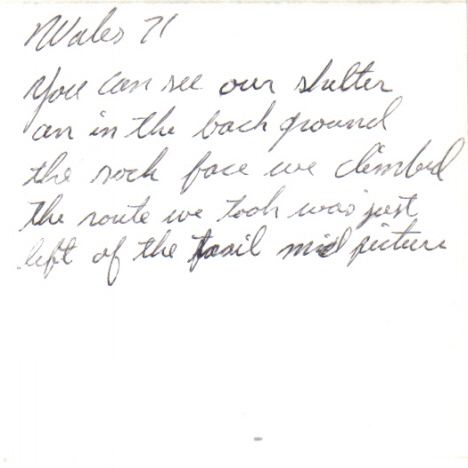 Wales 71
You can see our shelter
an in the back ground
the rock face we climbed
the route we took was just
left of the mid picture